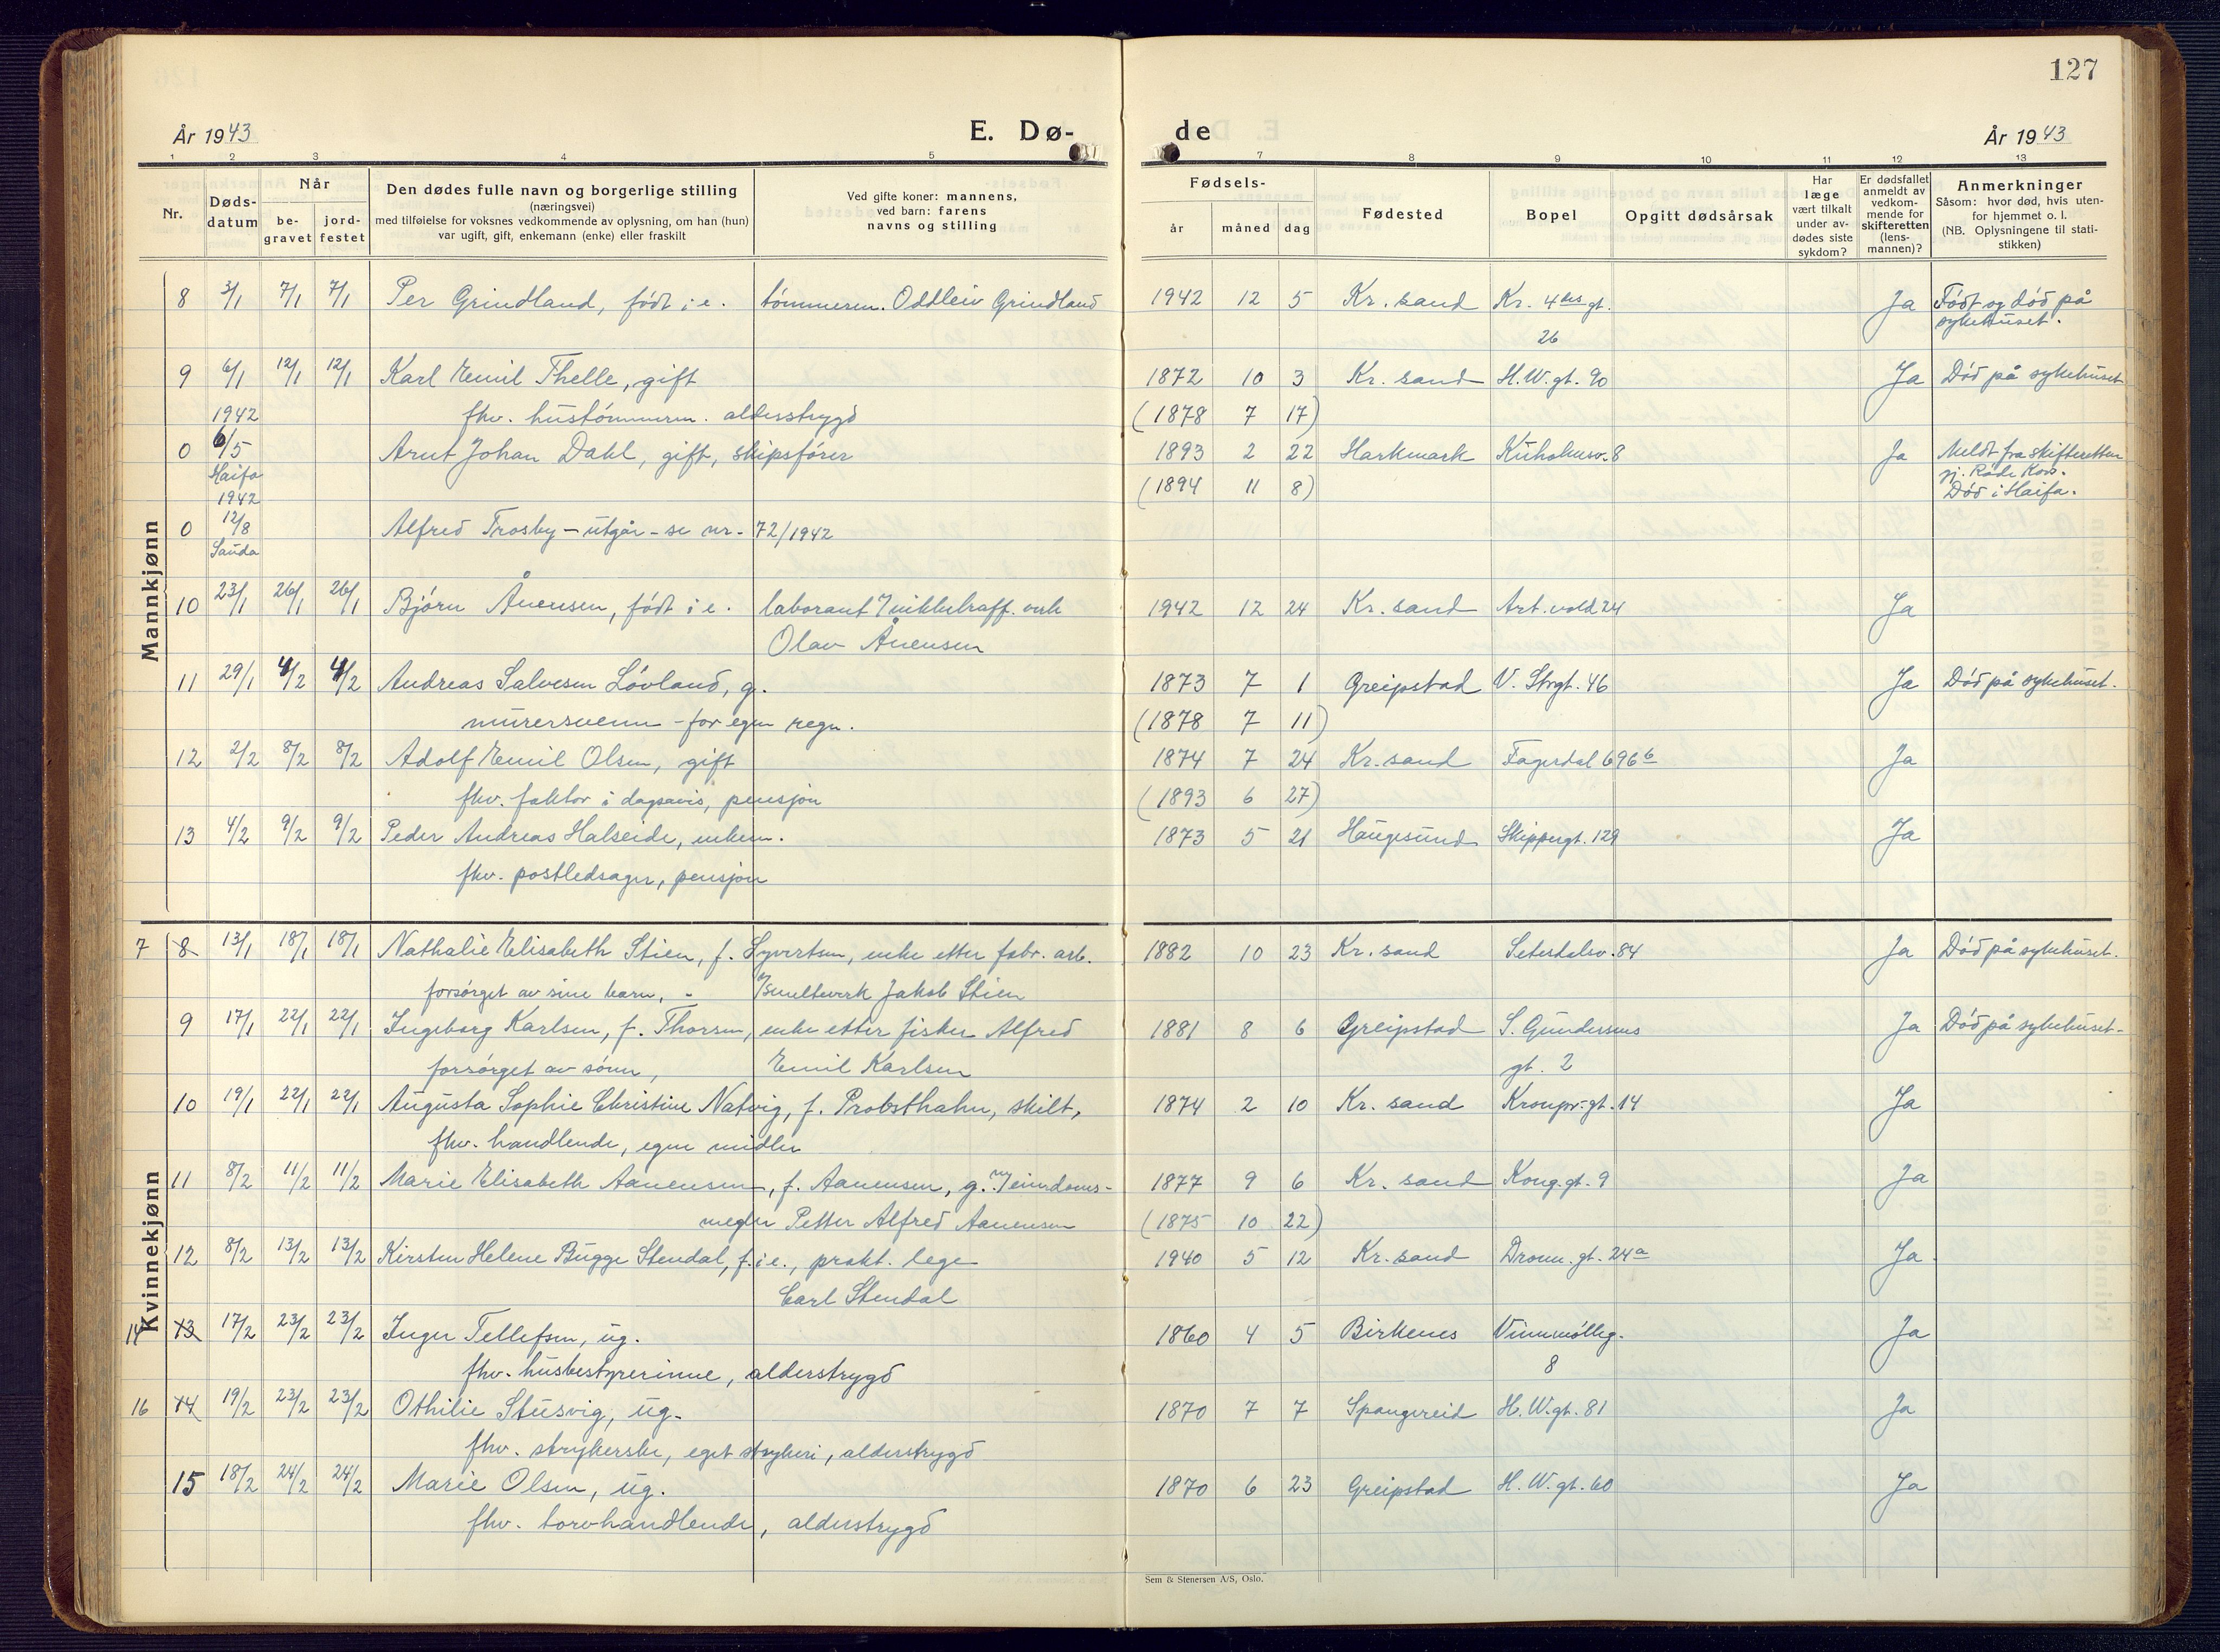 127
År 1943
E. Dø-
de
År 1943
1 2 3 4 5 7 8 9 10 11 12 13
Nr.
Døds-
datum
Når
be-
gravet
jord-
festet
Den dødes fulle navn og borgerlige stilling
(næringsvei)
med tilføielse for voksnes vedkommende av oplysning, om han (hun)
var ugift, gift, enkemann (enke) eller fraskilt
Ved gifte koner: mannens,
ved barn: farens
navns og stilling
Fødsels-
år måned dag
Fødested
Bopel
Opgitt dødsårsak
Har
læge
vært tilkalt
under av-
dødes siste
sykdom?
Er dødsfallet
anmeldt av
vedkom-
mende for
skifteretten
(lens-
mannen)?
Anmerkninger
Såsom: hvor død, hvis uten-
for hjemmet o. l.
(NB. Oplysningene til stati-
stikken)
Mannkjønn
8 3/1 7/1 7/1 Per Grindland, født i e. tømmerm. Oddleiv Grindland 1942 12 5 Kr. sand Kr. 4des gt. Ja Født og død på
26 sykehuset.
9 6/1 12/1 12/1 Karl Emil Thelle, gift 1872 10 3 Kr. sand H.W.gt. 90 Ja Død på sykehuset
1942 fhv. hustømmerm. alderstrygd (1878 7 17)
0 6/5 Arnt Johan Dahl, gift, skipsfører 1893 2 22 Harkmark Kuholmsv. 8 Ja Meldt fra skifteretten
Haifa gj. Røde Kors.
1942 (1894 11 8) Død i Haifa.
0 12/8 Alfred Trosby – utgår – se nr. 72/1942
Sauda
10 23/1 26/1 26/1 Bjørn Ånensen, født i e. laborant v/nikkelraff. verk 1942 12 24 Kr. sand Art. vold 24 Ja
Olav Ånensen
11 29/1 4/2 4/2 Andreas Salvesen Løvland, g. 1873 7 1 Greipstad V. Strgt. 46 Ja Død på sykehuset.
murersvenn – for egen regn. (1878 7 11)
12 2/2 8/2 8/2 Adolf Emil Olsen, gift 1874 7 24 Kr. sand Fagerdal 696b Ja
fhv. faktor i dagsavis, pensjon (1893 6 27)
13 4/2 9/2 9/2 Peder Andreas Halseide, enkem. 1873 5 21 Haugesund Skippergt. 129 Ja
fhv. postledsager, pensjon
Kvinnekjønn
7 8 13/1 18/1 18/1 Nathalie Elisabeth Stien, f. Syvertsen, enke etter fabr. arb. 1882 10 23 Kr. sand Setesdalsv. 84 Ja Død på sykehuset.
forsørget av sine barn, – v/smelteverk Jakob Stien
9 17/1 22/1 22/1 Ingeborg Karlsen, f. Thorsen, enke etter fisker Alfred 1881 8 6 Greipstad S. Gundersens Ja Død på sykehuset.
forsørget av sønn, Emil Karlsen gt. 2
10 19/1 22/1 22/1 Augusta Sophie Christine Natvig, f. Probsthahn, skilt, 1874 2 10 Kr. sand Kronpr. gt. 14 Ja
fhv. handlende, egne midler
11 8/2 11/2 11/2 Marie Elisabeth Aanensen, f. Aanensen, g. m/eiendoms- 1877 9 6 Kr. sand Kong. gt. 9 Ja
megler Petter Alfred Aanensen (1875 10 22)
12 8/2 13/2 13/2 Kirsten Helene Bugge Stendal, f. i e., prakt. lege 1940 5 12 Kr. sand Dronn. gt. 24a Ja.
Carl Stendal
14 13 17/2 23/2 23/2 Inger Tellefsen, ug. 1860 4 5 Birkenes Vinnmølleg. Ja
fhv. husbestyrerinne, alderstrygd 8
16 14 19/2 23/2 23/2 Othilie Stusvig, ug. 1870 7 7 Spangereid H. W.gt. 81 Ja
fhv. strykerske, eget strykeri, alderstrygd
15 18/2 24/2 24/2 Marie Olsen, ug. 1870 6 23 Greipstad H. W. gt. 60 Ja
fhv. torvhandlende, alderstrygd
Sem & Stenersen A/S, Oslo.